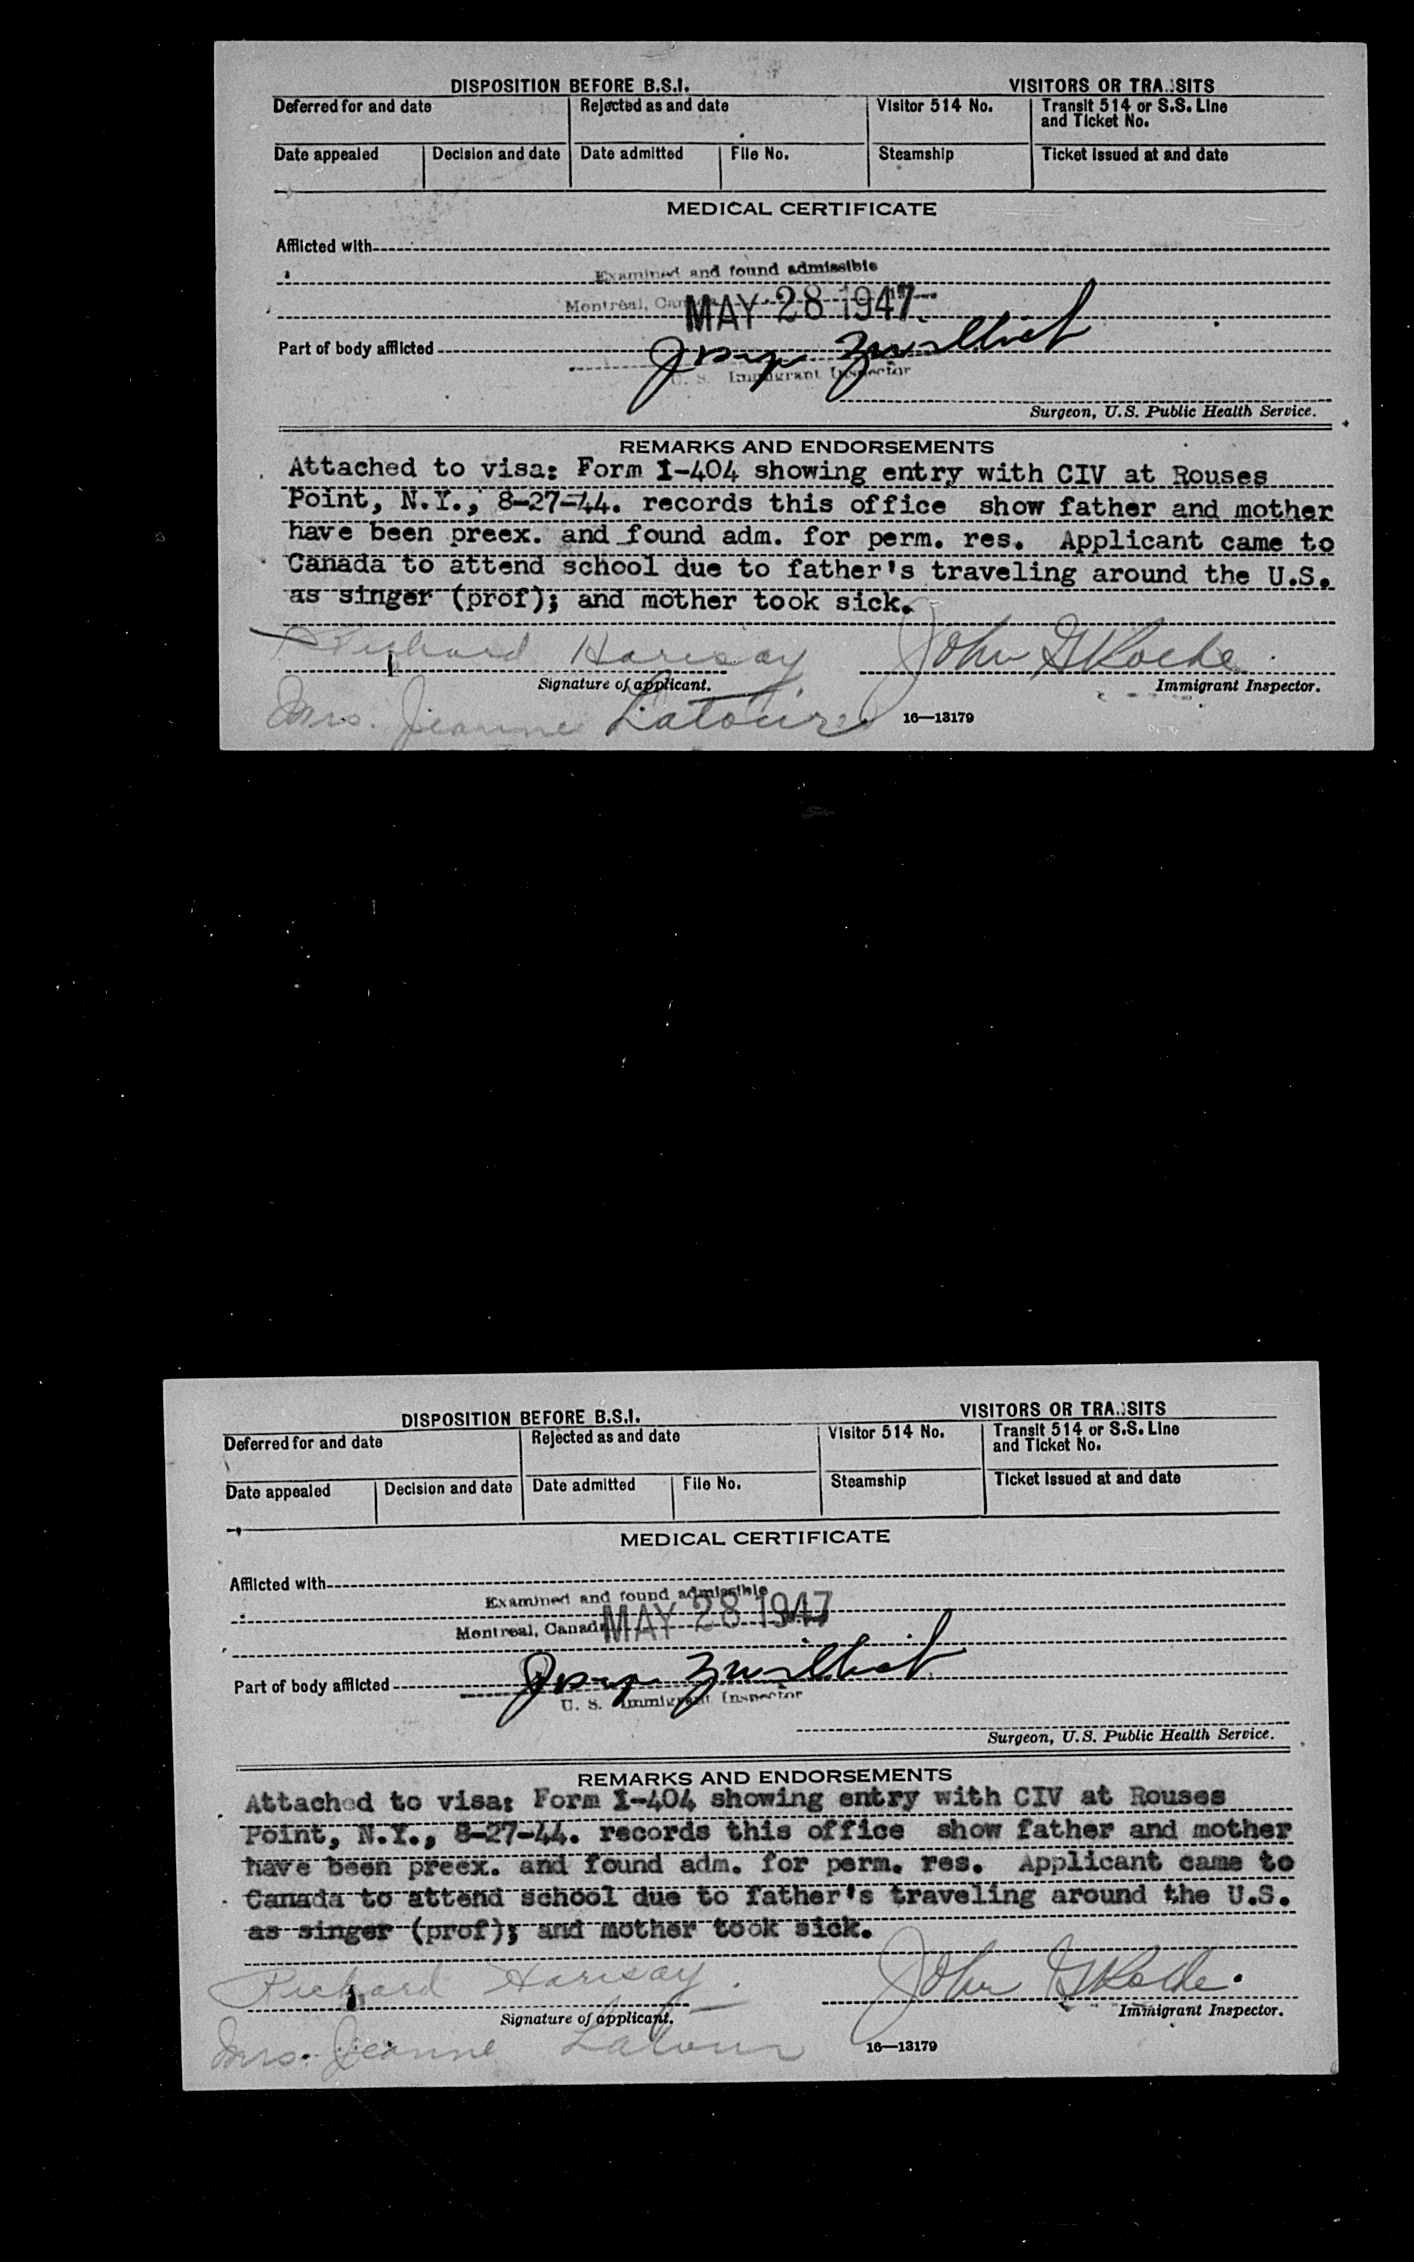 DISPOSITION BEFORE B.S.I. VISITORS OR TRA..SITS
Deferred for and date Rejected as and date Visitor 514 No. Transit 514 or S.S. Line
and Ticket No.
Date appealed Decision and date Date admitted File No. Steamship Ticket issued at and date
MEDICAL CERTIFICATE
Afflicted with
Examined and found admissible
Montreal, Canada
MAY 28 1947
Part of body afflicted
U. S. Immigrant Inspector
Surgeon, U.S. Public Health Service.
REMARKS AND ENDORSEMENTS
Attached to visa: Form I-404 showing entry with CIV at Rouses
Point, N.Y., 8-27-44. records this office show father and mother
have been preex. and found adm. for perm. res. Applicant came to
Canada to attend school due to father's traveling around the U.S.
as singer (prof); and mother took sick.
Richard Harisay John G Roche
Signature of applicant. Immigrant Inspector.
Mrs. Jeanne Latour 16—13179
DISPOSITION BEFORE B.S.I. VISITORS OR TRA..SITS
Deferred for and date Rejected as and date Visitor 514 No. Transit 514 or S.S. Line
and Ticket No.
Date appealed Decision and date Date admitted File No. Steamship Ticket issued at and date
MEDICAL CERTIFICATE
Afflicted with
Examined and found admissible
Montreal, Canada MAY 28 1947
Part of body afflicted
U. S. Immigrant Inspector
Surgeon, U.S. Public Health Service.
REMARKS AND ENDORSEMENTS
Attached to visa: Form I-404 showing entry with CIV at Rouses
Point, N.Y., 8-27-44. records this office show father and mother
have been preex. and found adm. for perm. res. Applicant came to
Canada to attend school due to father's traveling around the U.S.
as singer (prof); and mother took sick.
Richard Harisay. John G Roche.
Signature of applicant. Immigrant Inspector.
Mrs. Jeanne Latour 16—13179